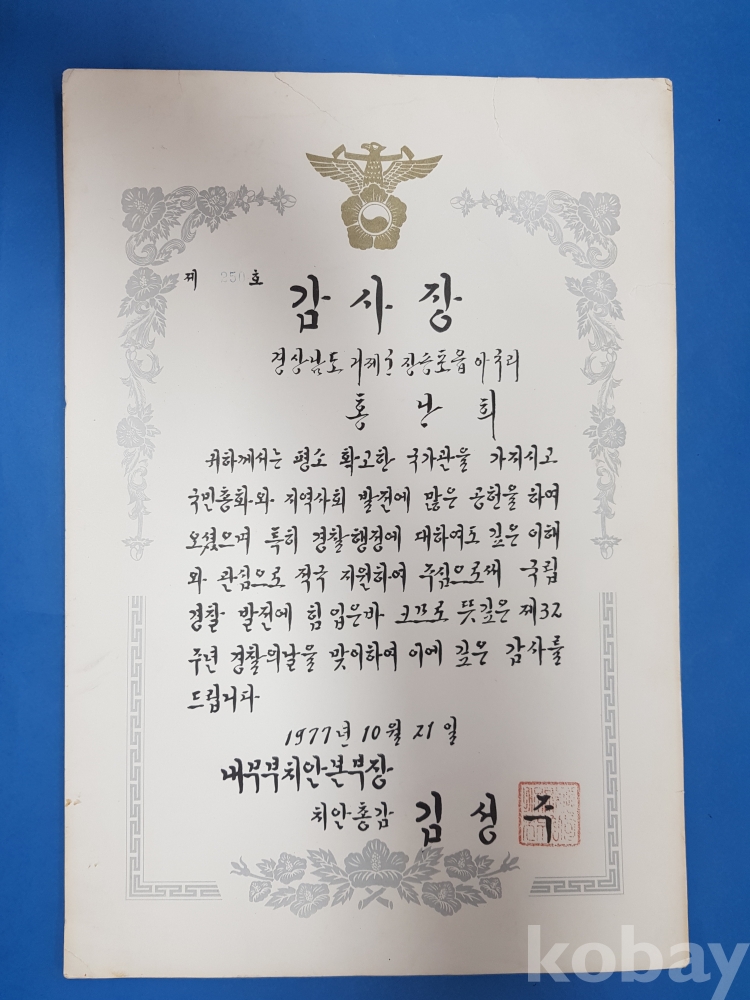 제 250 호
감사장
경상남도 거제군 장승포읍 아주리
홍 난 희
귀하께서는 평소 확고한 국가관을 가지시고
국민총화와 지역사회 발전에 많은 공헌을 하여
오셨으며 특히 경찰행정에 대하여도 깊은 이해
와 관심으로 적극 지원하여 주심으로써 국립
경찰 발전에 힘입은바 크므로 뜻깊은 제32
주년 경찰의날을 맞이하여 이에 깊은 감사를
드립니다
1977년 10월 21일
내무부치안본부장
치안총감 김 성 주
kobay